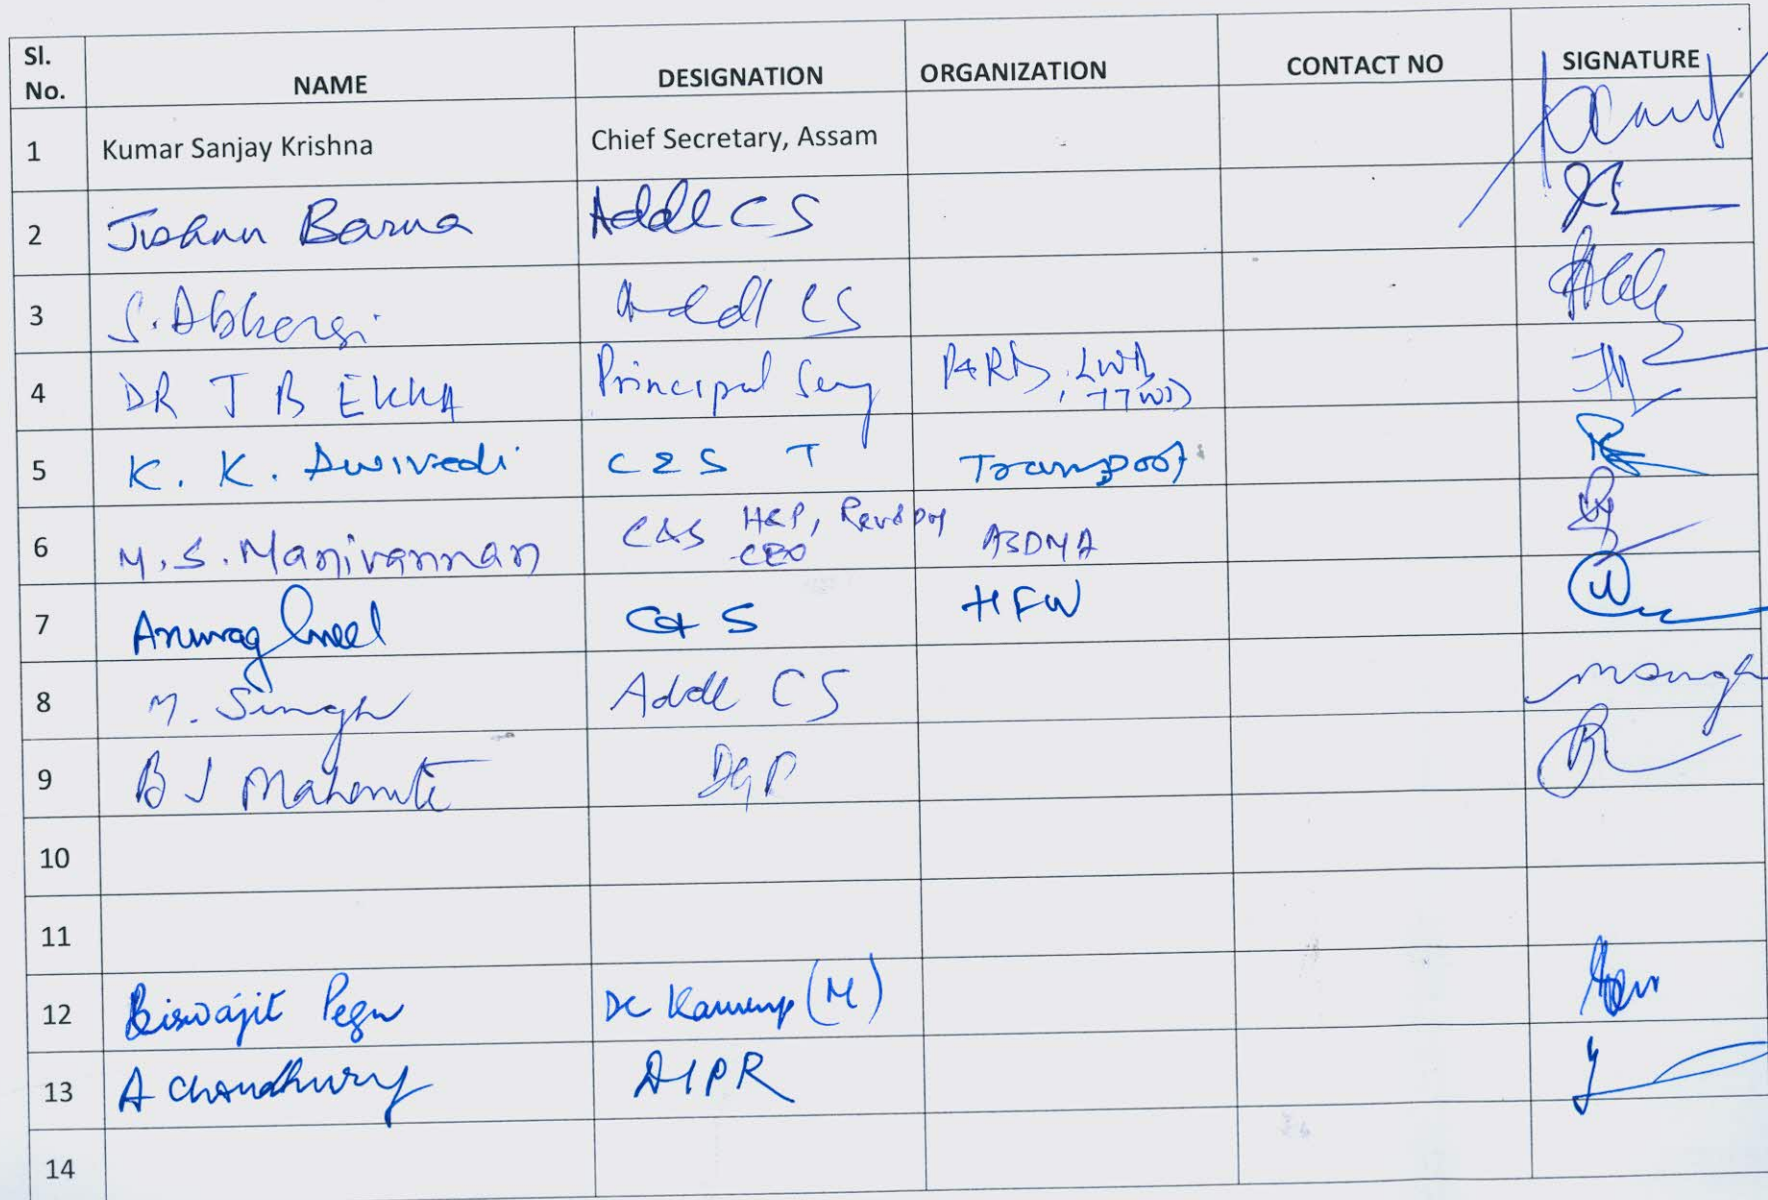 Sl. No. NAME DESIGNATION ORGANIZATION CONTACT NO SIGNATURE
1 Kumar Sanjay Krishna Chief Secretary, Assam
2 Jishnu Barua Addl CS
3 S. Abbasi Addl CS
4 DR J B EKKA Principal Secy P&RD,
5 K. K. Dwivedi C & S T Transport
6 M.S. Manivannan C&S H&P, Rev& DM CEO ASDMA
7 Anurag Goel C & S HFW
8 M. Singh Addl CS msingh
9 B J Mahanta DGP
10
11
12 Biswajit Pegu DC Kamrup (M)
13 A Choudhury DIPR
14